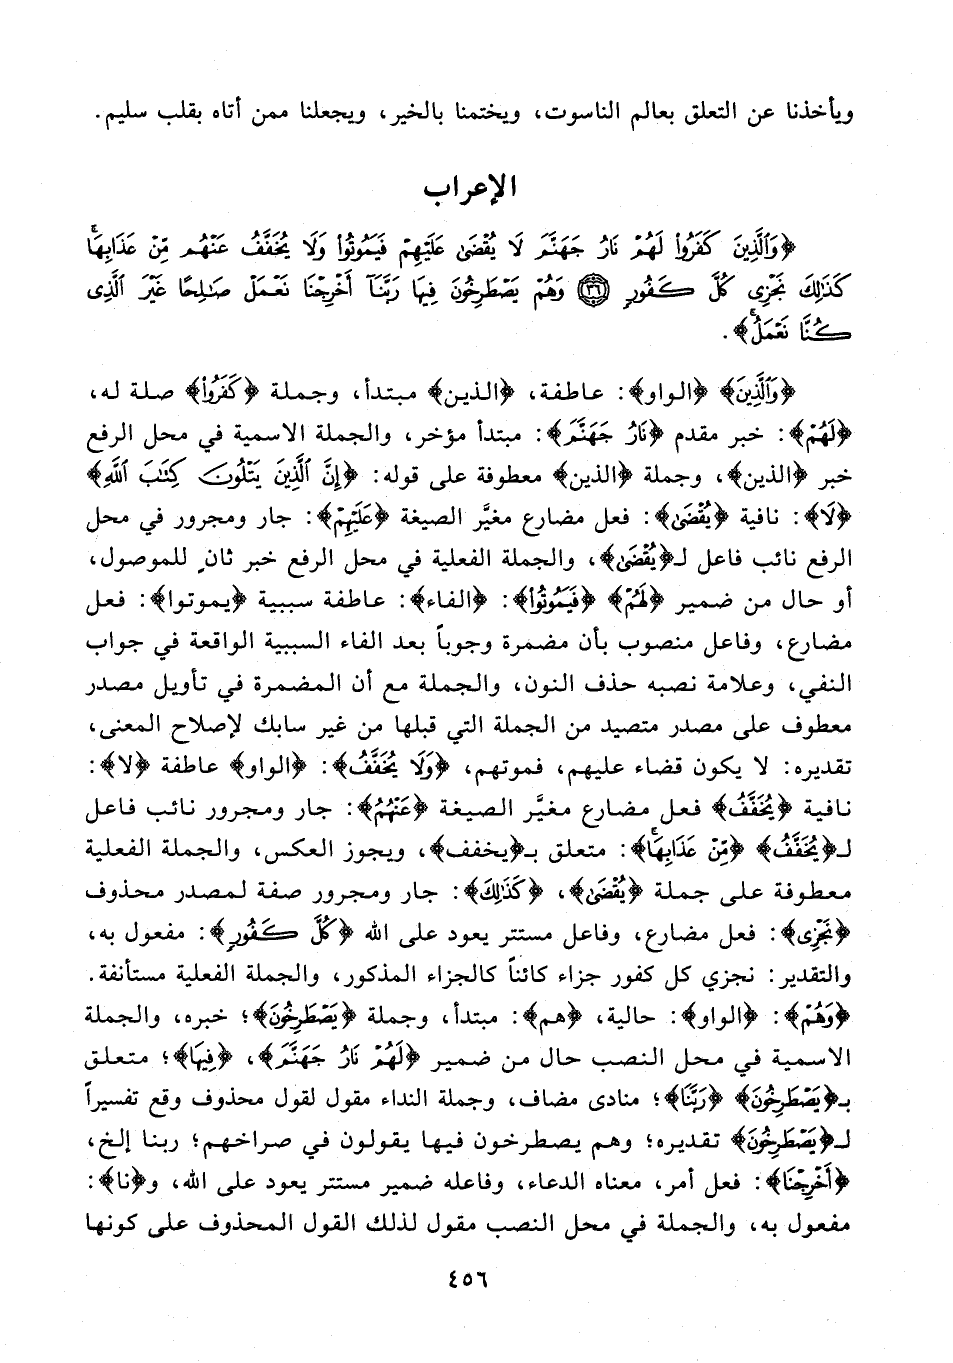 ويأخذنا عن التعلق بعالم الناسوت، ويختمنا بالخير، ويجعلنا ممن أتاه بقلب سليم.
الإعراب
﴿وَٱلَّذِينَ كَفَرُوا۟ لَهُمْ نَارُ جَهَنَّمَ لَا يُقْضَىٰ عَلَيْهِمْ فَيَمُوتُوا۟ وَلَا يُخَفَّفُ عَنْهُم مِّنْ عَذَابِهَا ۚ
كَذَٰلِكَ نَجْزِى كُلَّ كَفُورٍ ﴿٣٦﴾ وَهُمْ يَصْطَرِخُونَ فِيهَا رَبَّنَآ أَخْرِجْنَا نَعْمَلْ صَـٰلِحًا غَيْرَ ٱلَّذِى
كُنَّا نَعْمَلُ ۚ﴾.
﴿وَٱلَّذِينَ﴾ ﴿الواو﴾: عاطفة، ﴿الذين﴾ مبتدأ، وجملة ﴿كَفَرُوا۟﴾ صلة له،
﴿لَهُمْ﴾: خبر مقدم ﴿نَارُ جَهَنَّمَ﴾: مبتدأ مؤخر، والجملة الاسمية في محل الرفع
خبر ﴿الذين﴾، وجملة ﴿الذين﴾ معطوفة على قوله: ﴿إِنَّ ٱلَّذِينَ يَتْلُونَ كِتَـٰبَ ٱللَّهِ﴾
﴿لَا﴾: نافية ﴿يُقْضَىٰ﴾: فعل مضارع مغيَّر الصيغة ﴿عَلَيْهِمْ﴾: جار ومجرور في محل
الرفع نائب فاعل لـ﴿يُقْضَىٰ﴾، والجملة الفعلية في محل الرفع خبر ثانٍ للموصول،
أو حال من ضمير ﴿لَهُمْ﴾ ﴿فَيَمُوتُوا۟﴾: ﴿الفاء﴾: عاطفة سببية ﴿يموتوا﴾: فعل
مضارع، وفاعل منصوب بأن مضمرة وجوباً بعد الفاء السببية الواقعة في جواب
النفي، وعلامة نصبه حذف النون، والجملة مع أن المضمرة في تأويل مصدر
معطوف على مصدر متصيد من الجملة التي قبلها من غير سابك لإصلاح المعنى،
تقديره: لا يكون قضاء عليهم، فموتهم، ﴿وَلَا يُخَفَّفُ﴾: ﴿الواو﴾ عاطفة ﴿لا﴾:
نافية ﴿يُخَفَّفُ﴾ فعل مضارع مغيَّر الصيغة ﴿عَنْهُمْ﴾: جار ومجرور نائب فاعل
لـ﴿يُخَفَّفُ﴾ ﴿مِّنْ عَذَابِهَا ۚ﴾: متعلق بـ﴿يخفف﴾، ويجوز العكس، والجملة الفعلية
معطوفة على جملة ﴿يُقْضَىٰ﴾، ﴿كَذَٰلِكَ﴾: جار ومجرور صفة لمصدر محذوف
﴿نَجْزِى﴾: فعل مضارع، وفاعل مستتر يعود على الله ﴿كُلَّ كَفُورٍ﴾: مفعول به،
والتقدير: نجزي كل كفور جزاء كائناً كالجزاء المذكور، والجملة الفعلية مستأنفة.
﴿وَهُمْ﴾: ﴿الواو﴾: حالية، ﴿هم﴾: مبتدأ، وجملة ﴿يَصْطَرِخُونَ﴾؛ خبره، والجملة
الاسمية في محل النصب حال من ضمير ﴿لَهُمْ نَارُ جَهَنَّمَ﴾، ﴿فِيهَا﴾؛ متعلق
بـ﴿يَصْطَرِخُونَ﴾ ﴿رَبَّنَا﴾؛ منادى مضاف، وجملة النداء مقول لقول محذوف وقع تفسيراً
لـ﴿يَصْطَرِخُونَ﴾ تقديره؛ وهم يصطرخون فيها يقولون في صراخهم؛ ربنا إلخ،
﴿أَخْرِجْنَا﴾: فعل أمر، معناه الدعاء، وفاعله ضمير مستتر يعود على الله، و﴿نا﴾:
مفعول به، والجملة في محل النصب مقول لذلك القول المحذوف على كونها
٤٥٦